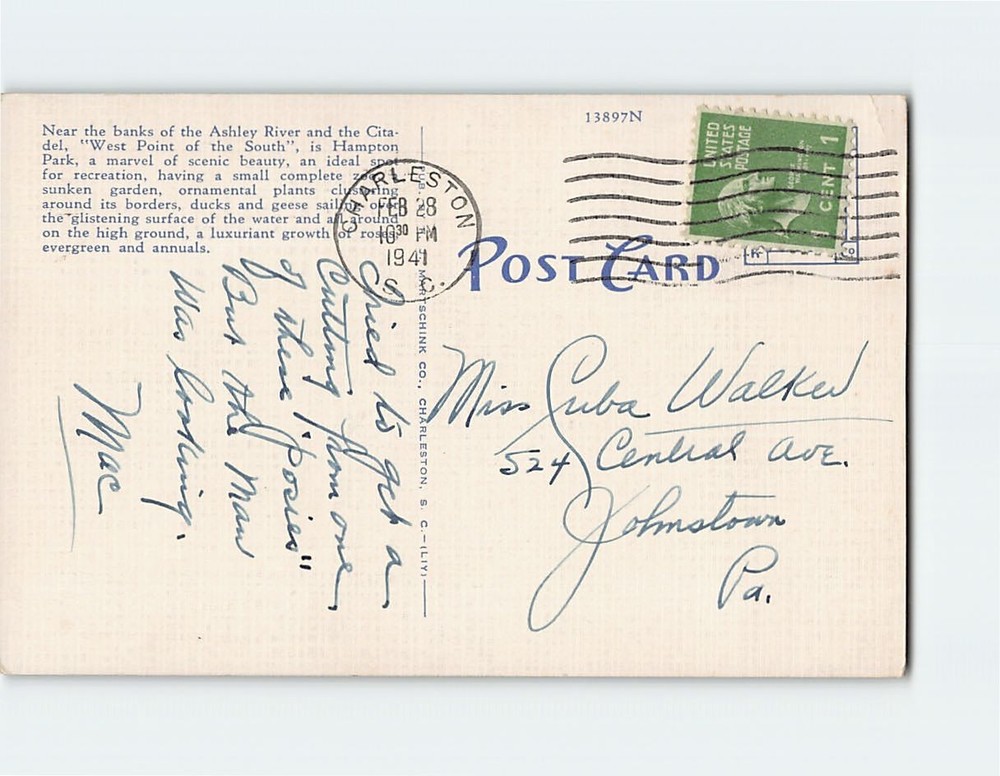 Near the banks of the Ashley River and the Cita-
del, "West Point of the South", is Hampton
Park, a marvel of scenic beauty, an ideal spot
for recreation, having a small complete
sunken garden, ornamental plants clustering
around its borders, ducks and geese
the glistening surface of the water and all around
on the high ground, a luxuriant growth of
evergreen and annuals.
13897N
UNITED
STATES
POSTAGE
1
CENT
CHARLESTON
FEB 28
10 30 PM
1941
S. C.
POST CARD
MARTSCHINK CO., CHARLESTON, S. C.—(LIY)
Tried to get a
cutting from one
of these "posies"
But the Man
Was looking.
Mac
Miss Cuba Walker
524 Central Ave.
Johnstown
Pa.